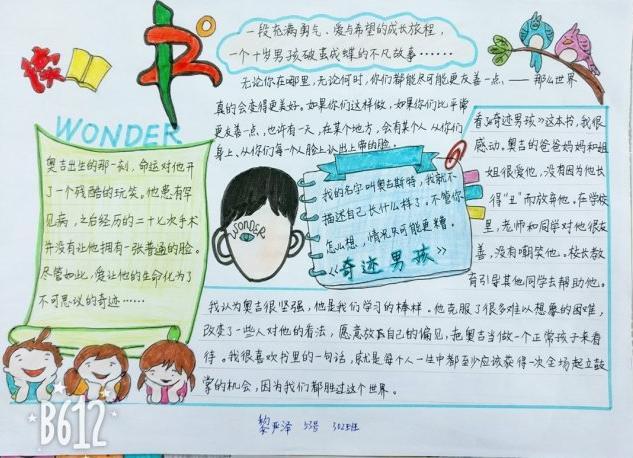 读
书
WONDER
一段充满勇气、爱与希望的成长旅程，
一个十岁男孩破茧成蝶的不凡故事……
无论你在哪里，无论何时，你们都能尽可能更友善一点，——那么世界
真的会变得更美好。如果你们这样做，如果你们比平常
更友善一点，也许有一天，在某个地方，会有某个人从你们
身上、从你们每个人脸上认出上帝的脸。
奥吉出生的那一刹，命运对他开
了一个残酷的玩笑。他患有罕
见病，之后经历的二十七次手术
并没有让他拥有一张普通的脸。
尽管如此，爱让他的生命化为了
不可思议的奇迹……
wonder
我的名字叫奥吉斯特，我就不
描述自己长什么样了。不管你
怎么想，情况只可能更糟。
《奇迹男孩》
看《奇迹男孩》这本书，我很
感动。奥吉的爸爸妈妈和姐
姐很爱他，没有因为他长
得“丑”而放弃他。在学校
里，老师和同学对他很友
善，没有嘲笑他。校长教
育引导其他同学去帮助他。
我认为奥吉很坚强，他是我们学习的榜样。他克服了很多难以想象的困难，
改变了一些人对他的看法，愿意放下自己的偏见，把奥吉当做一个正常孩子来看
待。我很喜欢书里的一句话，就是每个人一生中都至少应该获得一次全场起立鼓
掌的机会，因为我们都胜过这个世界。
黎尹泽 53号 302班
B612